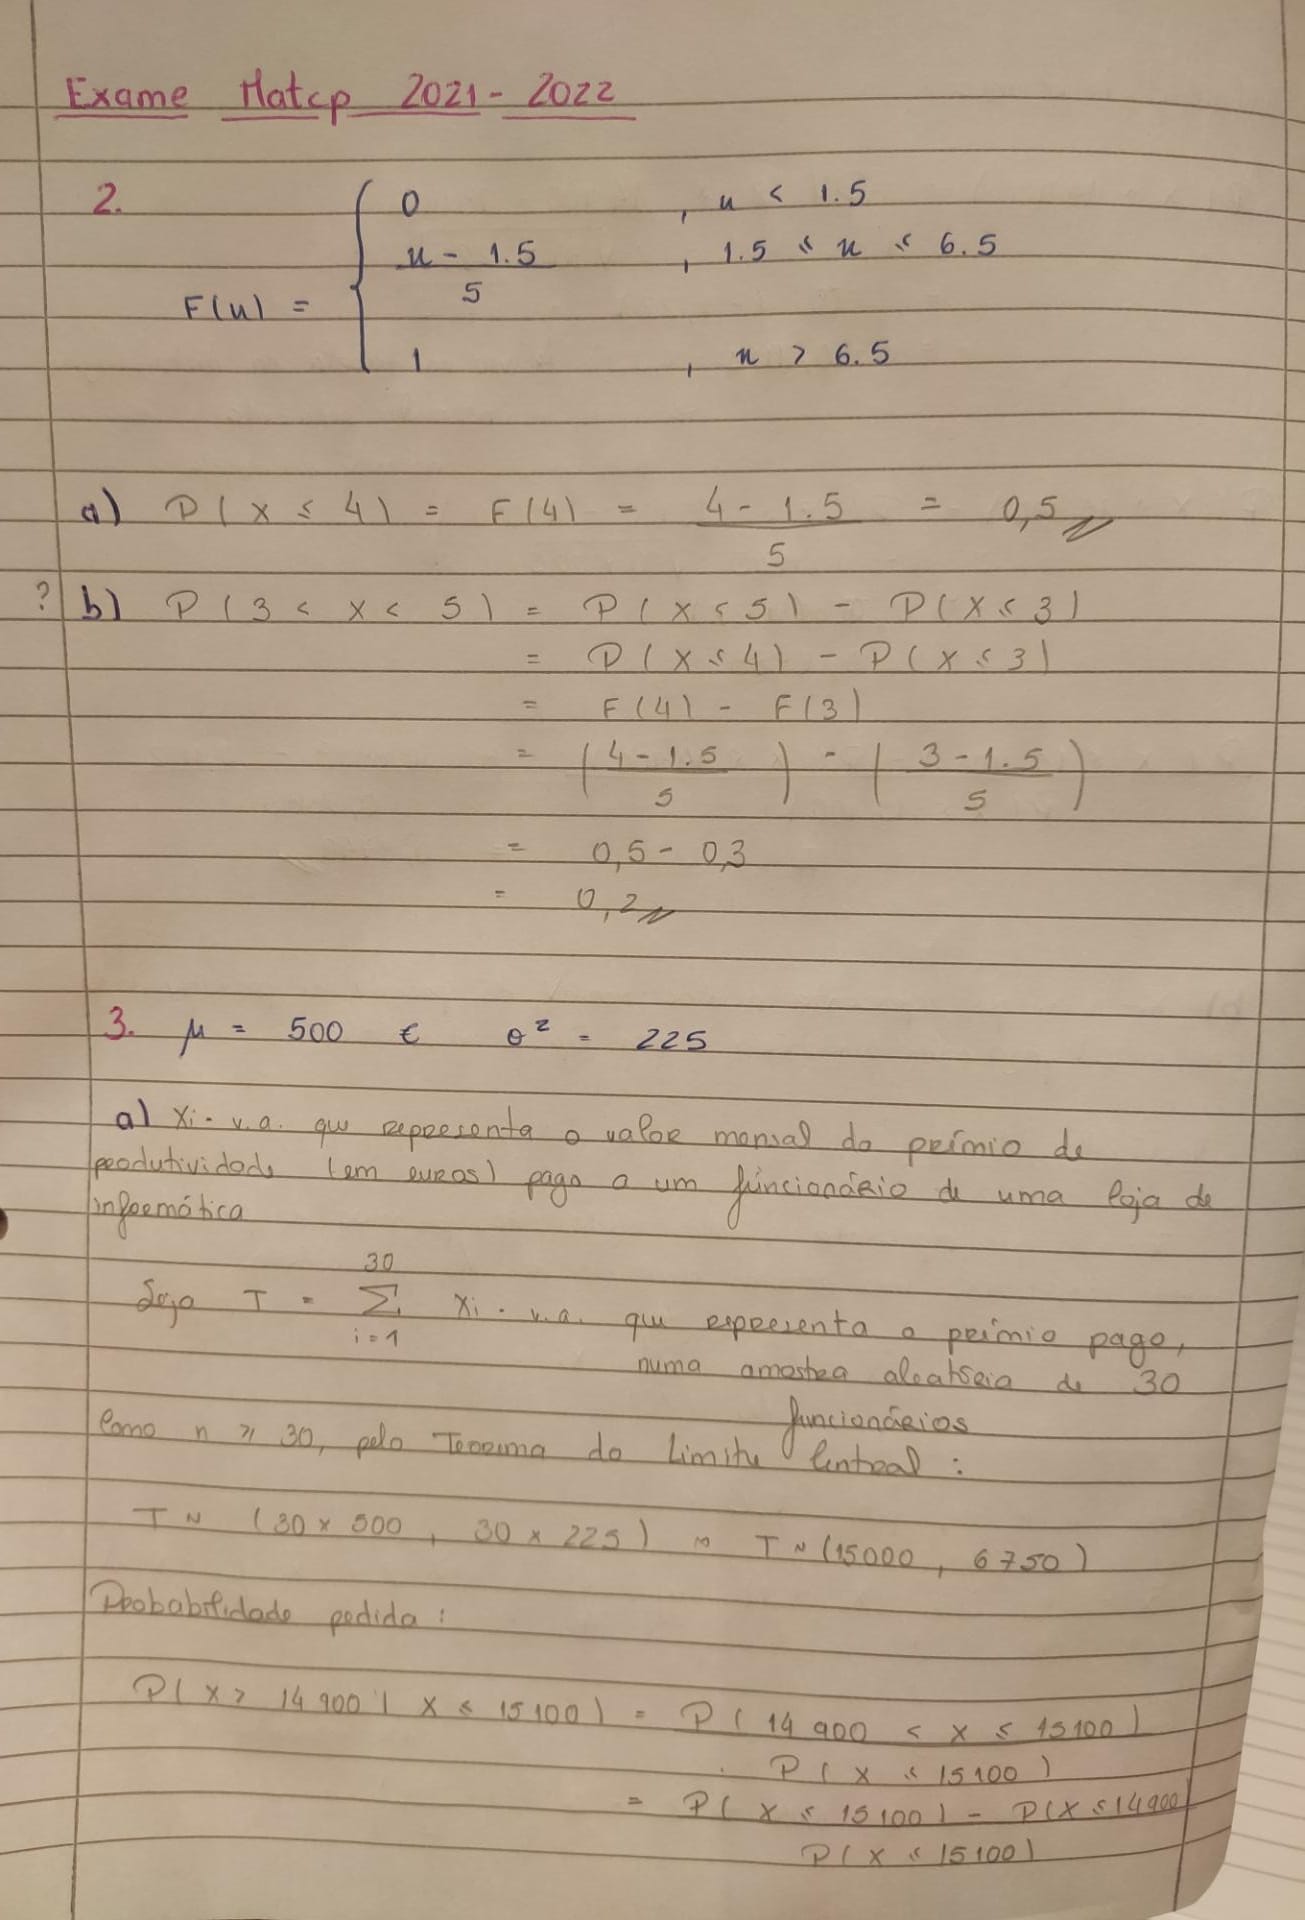 Exame Matcp 2021-2022
2.
0 , x < 1.5
x - 1.5 , 1.5 ≤ x ≤ 6.5
5
F(x) =
1 , x > 6.5
a) P(X ≤ 4) = F(4) = 4 - 1.5 = 0,5
5
? b) P(3 < X < 5) = P(X < 5) - P(X ≤ 3)
= P(X ≤ 4) - P(X ≤ 3)
= F(4) - F(3)
= (4 - 1.5) - (3 - 1.5)
5 5
= 0,5 - 0,3
= 0,2
3. μ = 500 € θ² = 225
a) Xi - v.a. que representa o valor mensal do prémio de
produtividade (em euros) pago a um funcionário de uma loja de
informática
30
Seja T = Σ Xi - v.a. que representa o prémio pago,
i=1
numa amostra aleatória de 30
funcionários
Como n ≥ 30, pelo Teorema do Limite Central:
T ~ (30 × 500, 30 × 225) ~ T ~ (15000, 6750)
Probabilidade pedida:
P(X > 14 900 | X ≤ 15 100) = P(14 900 < X ≤ 15100)
P(X ≤ 15100)
= P(X ≤ 15100) - P(X ≤ 14900)
P(X ≤ 15100)